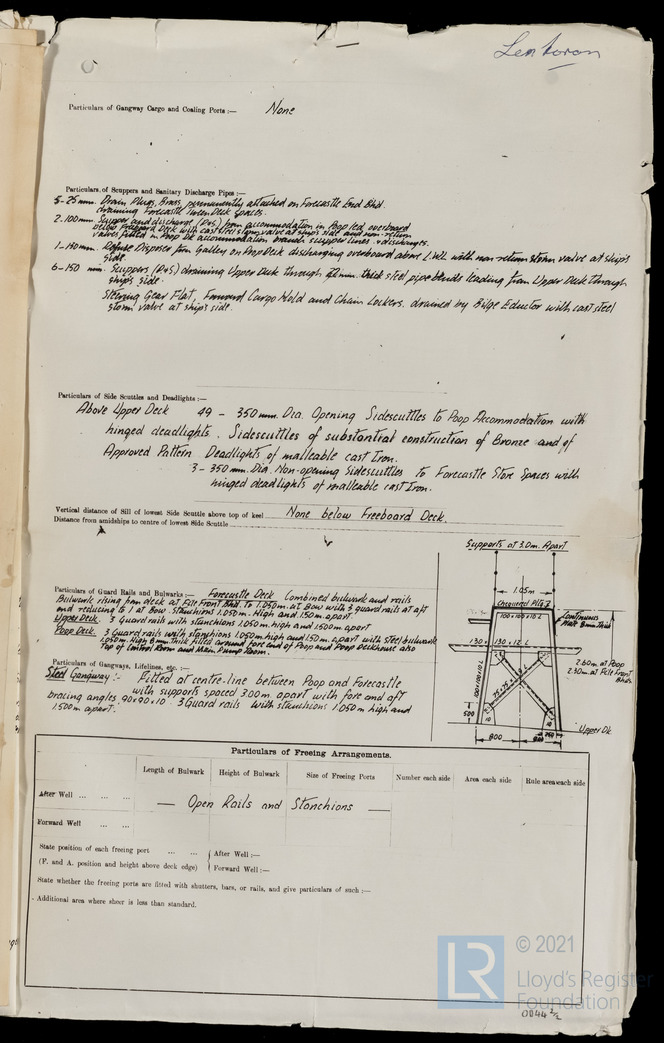 Lenkoran
Particulars of Gangway Cargo and Coaling Ports :— None
Particulars of Scuppers and Sanitary Discharge Pipes :—
5-25 mm. Drain Plugs, Brass, permanently attached on Forecastle End Bhd.
draining Forecastle Tween Deck Spaces.
2-100 mm. Scupper and discharge (P&S) from accommodation in Poop led overboard
below Freeboard Deck with cast steel storm valve at ship's side and non-return
valves fitted in Poop Dk accommodation branch scupper lines & discharges.
1-150 mm. Refuse Disposer from Galley on Poop Deck discharging overboard above L.W.L with non return storm valve at ship's
side.
6-150 mm. Scuppers (P&S) draining Upper Deck through thick steel pipe bends leading from Upper Deck through
ship's side.
Steering Gear Flat, Forward Cargo Hold and Chain Lockers, drained by Bilge Eductor with cast steel
storm valve at ship's side.
Particulars of Side Scuttles and Deadlights :—
Above Upper Deck 49 - 350 mm. Dia. Opening Sidescuttles to Poop Accommodation with
hinged deadlights. Sidescuttles of substantial construction of Bronze and of
Approved Pattern Deadlights of malleable cast Iron.
3 - 350 mm. Dia. Non-opening Sidescuttles to Forecastle Store Spaces with
hinged deadlights of malleable cast Iron.
Vertical distance of Sill of lowest Side Scuttle above top of keel None below Freeboard Deck.
Distance from amidships to centre of lowest Side Scuttle
Supports at 3.0m. Apart
1.05m
Chequered Plate
100 × 100 × 10 L
Continuous
Plate 8mm Thick
130 × 130 × 12 L
2.60m at Poop
2.30m at F'cle Front
Bhds.
100×100×10 L
75×75×9 L
500
Upper Dk
800
Particulars of Guard Rails and Bulwarks :— Forecastle Deck Combined bulwark and rails
Bulwark rising from deck at F'cle Front Bhd. to 1.050m. at Bow with 3 guard rails at aft
end reducing to 1 at Bow. Stanchions 1.050m. High and 1.50m apart.
Upper Deck. 3 Guard rails with stanchions 1.050m. high and 1.500m apart
Poop Deck. 3 Guard rails with stanchions 1.050m high and 1.50m. apart with steel bulwark
1.050m. high 8mm thick fitted around fore end of Poop and Poop Deckhouse also
Top of Control Room and Main Pump Room.
Particulars of Gangways, Lifelines, etc. :—
Steel Gangway :- Fitted at centre-line between Poop and Forecastle
with supports spaced 3.00m. apart with fore and aft
bracing angles 90×90×10. 3 Guard rails with stanchions 1.050m high and
1.500m apart.
Particulars of Freeing Arrangements.
Length of Bulwark Height of Bulwark Size of Freeing Ports Number each side Area each side Rule area each side
After Well ... ... ... — Open Rails and Stanchions —
Forward Well ... ...
State position of each freeing port ... ... After Well :—
(F. and A. position and height above deck edge) Forward Well :—
State whether the freeing ports are fitted with shutters, bars, or rails, and give particulars of such :—
Additional area where sheer is less than standard.
LR
© 2021
Lloyd's Register
Foundation
0044 2/2